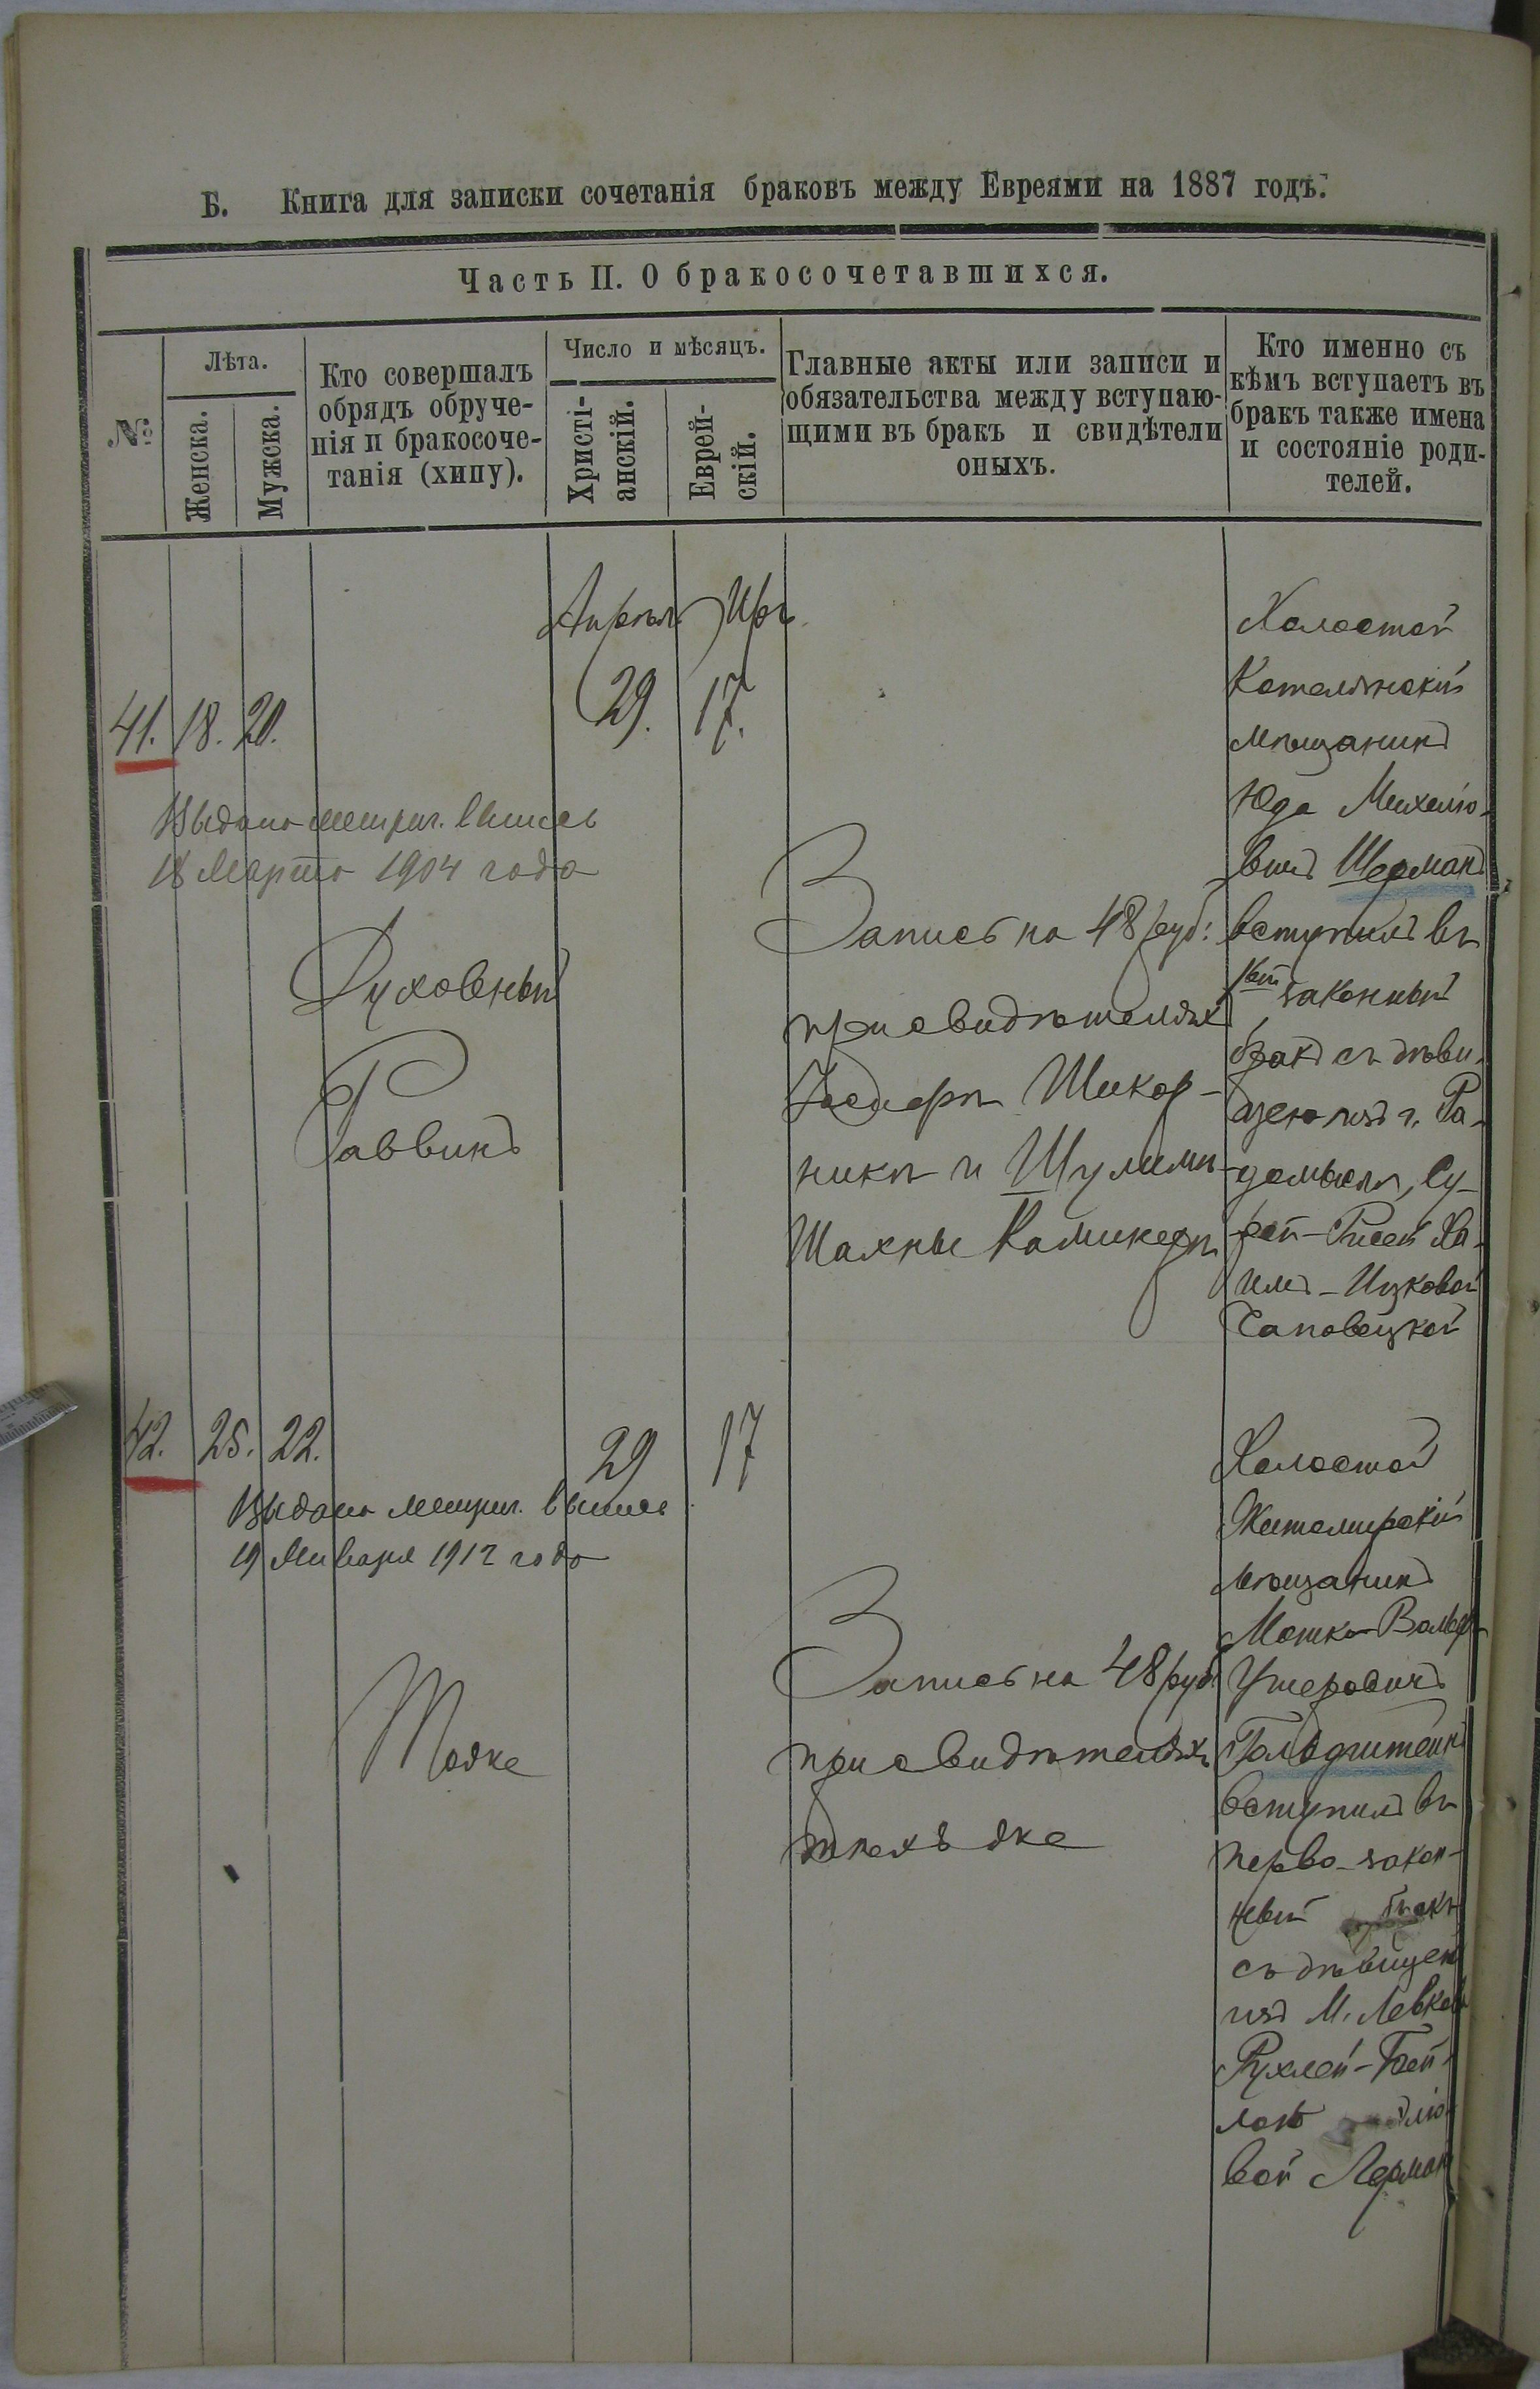 Б. Книга для записки сочетанія браковъ между Евреями на 1887 годъ.
Часть II. О бракосочетавшихся.
№
Лѣта.
Женска.
Мужска.
Кто совершалъ
обрядъ обруче-
нія и бракосоче-
танія (хипу).
Число и мѣсяцъ.
Христі-
анскій.
Еврей-
скій.
Главные акты или записи и
обязательства между вступаю-
щими въ бракъ и свидѣтели
оныхъ.
Кто именно съ
кѣмъ вступаетъ въ
бракъ также имена
и состояніе роди-
телей.
41. 18. 20.
Выдана метрич. выпись
18 Марта 1904 года
Духовный
Раввинъ
29. 17.
Запись на 48 руб:
при свидѣтеляхъ
Шикор-
никъ и Шулимъ-
Шахны
Холостой
мѣщанинъ
Юда Михелю-
вичъ Шерманъ
вступилъ въ
1ый законный
бракъ съ дѣви-
цею изъ г. Ра-
домысля, Су-
рой-Рисей Ха-
имъ-Ицковой
Саповецкой
42. 25. 22.
Выдана метрич. выпись
19 Января 1912 года
Тоже
29 17
Запись на 48 руб.
при свидѣтеляхъ
тѣхъ же
Холостой
Житомирскій
мѣщанинъ
Мошко-Вольф
Ушеровичъ
Гольдштейнъ
вступилъ въ
перво-закон-
ный бракъ
съ дѣвицею
изъ М. Левков
Рухлей-Бей-
лою
вой Лерман